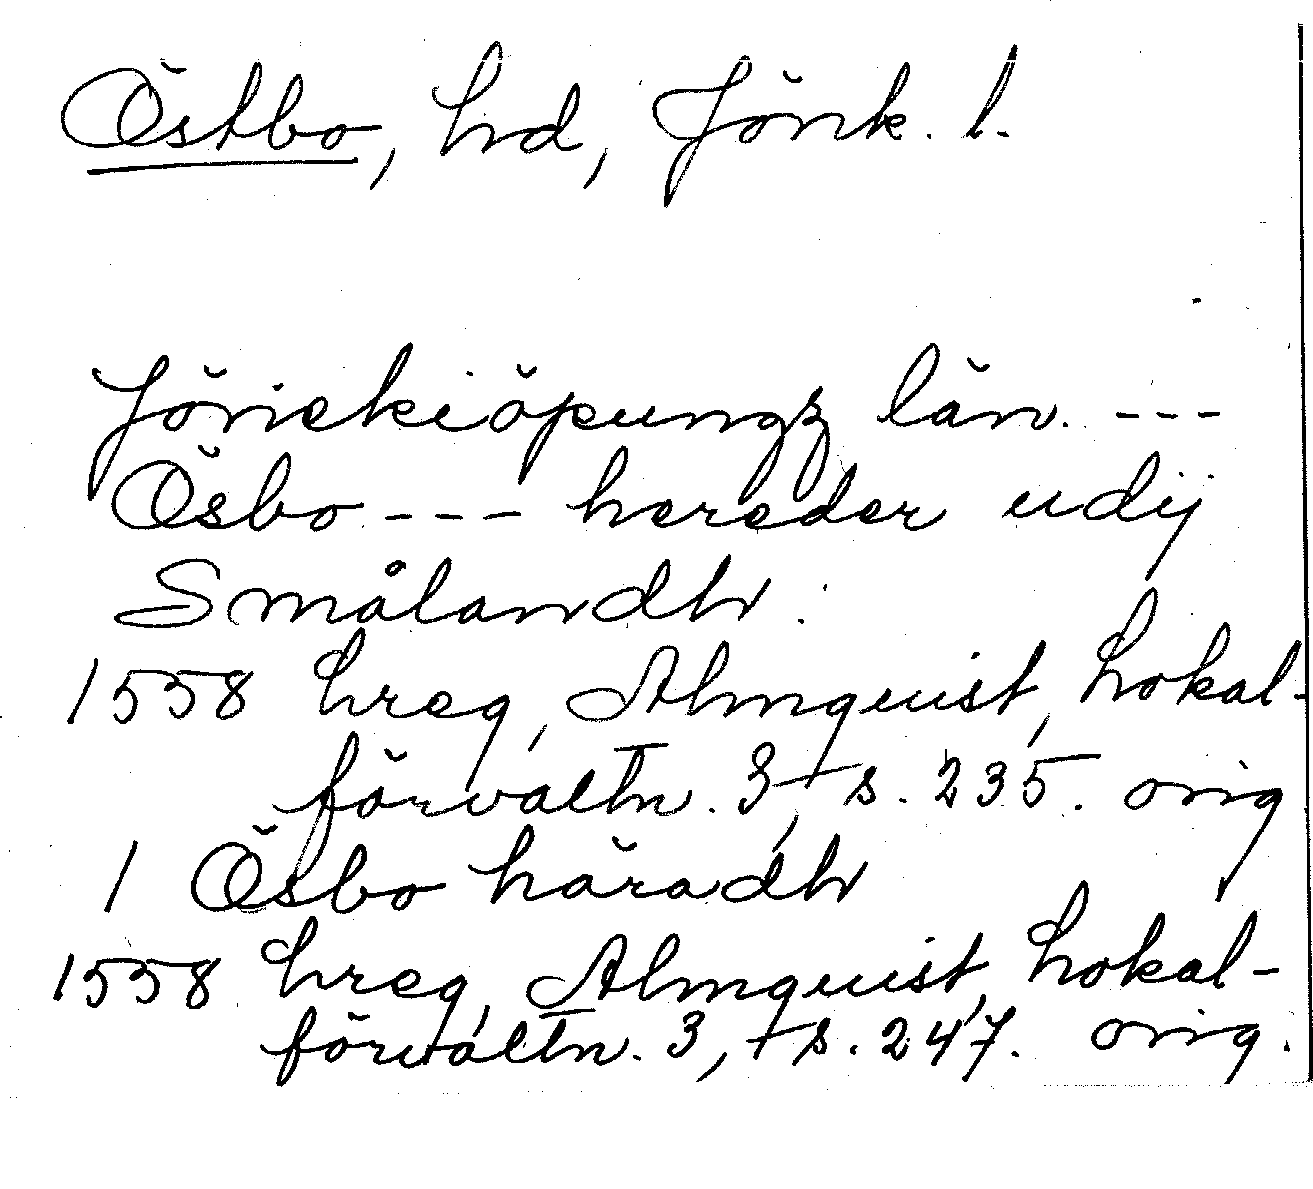 Östbo, hd, Jönk. l.
Jönickiöpungz län. ---
Ösbo --- hereder udij
Smålandh.
1558 hreg, Almquist, Lokal-
förvaltn. 3, s. 235. orig
1 Ösbo häradh
1558 hreg, Almquist, Lokal-
förvaltn. 3, s. 247. orig.